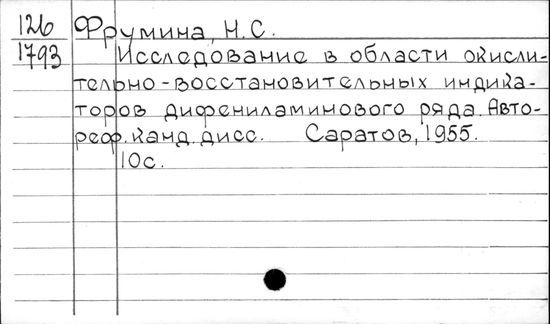 126 Фрумина, Н.С.
1793 Исследование в области окисли-
тельно-восстановительных индика-
торов дифениламинового ряда. Авто-
реф. канд. дисс. Саратов, 1955.
10с.